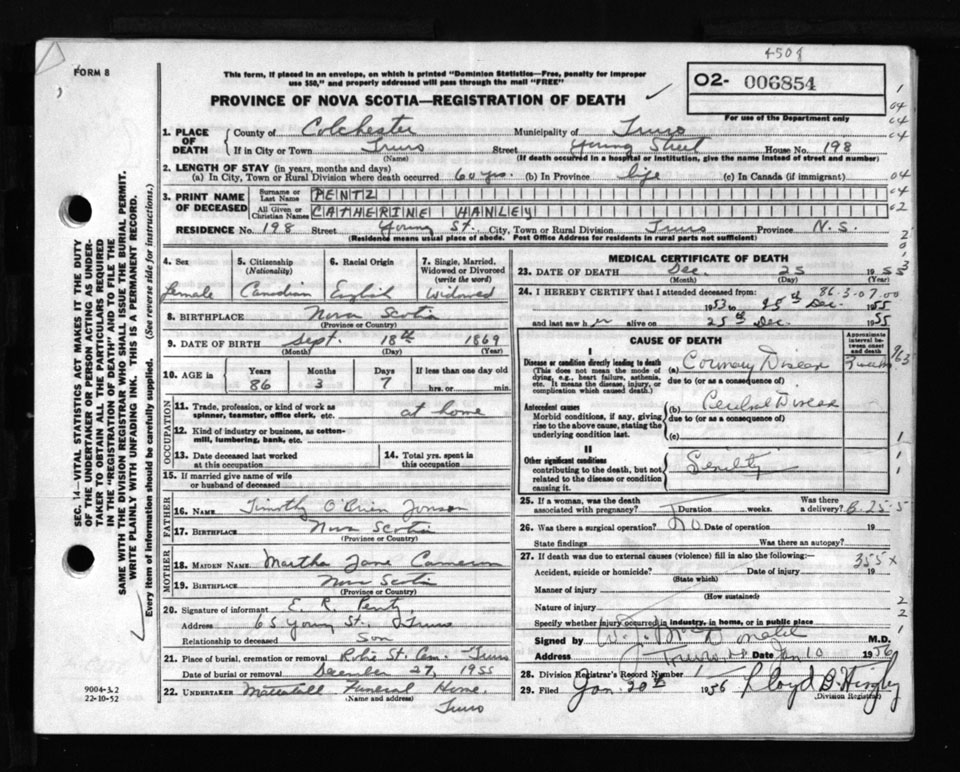 4504
FORM 8
This form, if placed in an envelope, on which is printed "Dominion Statistics—Free, penalty for improper
use $50," and properly addressed will pass through the mail "FREE"
O2- 006854
For use of the Department only
PROVINCE OF NOVA SCOTIA—REGISTRATION OF DEATH
1. PLACE OF DEATH County of Colchester Municipality of Truro
If in City or Town Truro Street Young Street House No. 198
(Name) (If death occurred in a hospital or institution, give the name instead of street and number)
2. LENGTH OF STAY (in years, months and days)
(a) In City, Town or Rural Division where death occurred 60 yrs. (b) In Province life (c) In Canada (if immigrant)
3. PRINT NAME OF DECEASED Surname or Last Name PENTZ
All Given or Christian Names CATHERINE HANLEY
RESIDENCE No. 198 Street Young St. City, Town or Rural Division Truro Province N.S.
(Residence means usual place of abode. Post Office Address for residents in rural parts not sufficient)
4. Sex 5. Citizenship (Nationality) 6. Racial Origin 7. Single, Married, Widowed or Divorced (write the word)
Female Canadian English Widowed
8. BIRTHPLACE Nova Scotia
(Province or Country)
9. DATE OF BIRTH Sept. 18th 1869
(Month) (Day) (Year)
10. AGE in Years Months Days If less than one day old
86 3 7 hrs. or min.
OCCUPATION
11. Trade, profession, or kind of work as spinner, teamster, office clerk, etc. at home
12. Kind of industry or business, as cotton-mill, lumbering, bank, etc.
13. Date deceased last worked at this occupation
14. Total yrs. spent in this occupation
15. If married give name of wife or husband of deceased
FATHER
16. NAME Timothy O'Brien
17. BIRTHPLACE Nova Scotia
(Province or Country)
MOTHER
18. MAIDEN NAME Martha Jane Cameron
19. BIRTHPLACE Nova Scotia
(Province or Country)
20. Signature of informant E. R. Pentz
Address 65 Young St., Truro
Relationship to deceased Son
21. Place of burial, cremation or removal Robie St. Cem. Truro
Date of burial or removal December 27, 1955
22. UNDERTAKER Mattatall Funeral Home.
(Name and address)
Truro
MEDICAL CERTIFICATE OF DEATH
23. DATE OF DEATH Dec. 25 1955
(Month) (Day) (Year)
24. I HEREBY CERTIFY that I attended deceased from 86-3-07-00
1953 to 25th Dec. 1955
and last saw her alive on 25th Dec. 1955
CAUSE OF DEATH
Approximate interval between onset and death
I
Disease or condition directly leading to death (a) Coronary Disease
(This does not mean the mode of dying, e.g., heart failure, asthenia, etc. It means the disease, injury, or complication which caused death.)
due to (or as a consequence of)
Antecedent causes (b) Cerebral Disease
Morbid conditions, if any, giving rise to the above cause, stating the underlying condition last.
due to (or as a consequence of)
(c)
II
Other significant conditions Senility
contributing to the death, but not related to the disease or condition causing it.
25. If a woman, was the death associated with pregnancy? Duration weeks. Was there a delivery?
26. Was there a surgical operation? no Date of operation 19
State findings Was there an autopsy?
27. If death was due to external causes (violence) fill in also the following:—
Accident, suicide or homicide? Date of injury 19
(State which)
355x
Manner of injury
(How sustained)
Nature of injury
Specify whether injury occurred in industry, in home, or in public place
Signed by W. J. McDonald M.D.
Address Truro Date Jan 10 1956
28. Division Registrar's Record Number
29. Filed Jan 20th 1956 Lloyd B. Hingley
(Division Registrar)
SEC. 14—VITAL STATISTICS ACT MAKES IT THE DUTY
OF THE UNDERTAKER OR PERSON ACTING AS UNDERTAKER TO OBTAIN ALL THE PARTICULARS REQUIRED
IN THE "REGISTRATION OF DEATH" AND TO FILE THE
SAME WITH THE DIVISION REGISTRAR WHO SHALL ISSUE THE BURIAL PERMIT.
WRITE PLAINLY WITH UNFADING INK. THIS IS A PERMANENT RECORD.
Every item of information should be carefully supplied. (See reverse side for instructions.)
9004-3.2
22-10-52